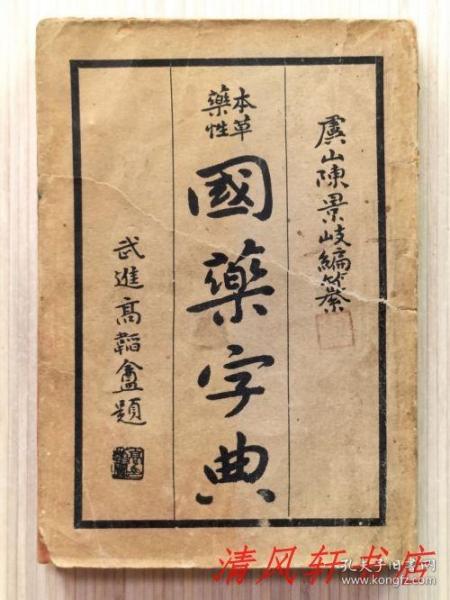 虞山陳景岐編纂
本草
藥性
國藥字典
武進高韜盦題
清风轩书店
孔夫子旧书网
www.kongfz.com